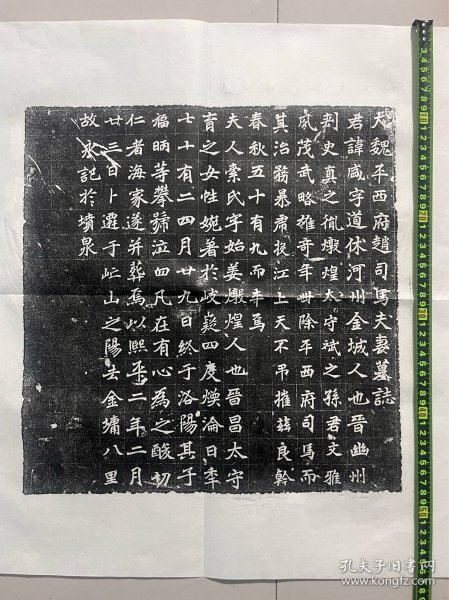 大魏平西府趙司馬夫妻墓誌
君諱咸字道休河州金城人也晉幽州
刾史真之胤燉煌太守斌之孫君文雅
夙茂武略雄奇年卅除平西府司馬而
其治務暴肅捉江上天不弔摧兹良幹
春秋五十有九而卒焉
夫人索氏字始姜燉煌人也晉昌太守
育之女性婉著於岐嶷四度煥淪日率
七十有二四月廿九日終于洛陽其子
福昞等攀號泣四凡在有心為之酸切
仁者海家遂并葬焉以熙平二年二月
廿三日卜遷于邙山之陽去金墉八里
故水記於墳泉
孔夫子旧书网
www.kongfz.com